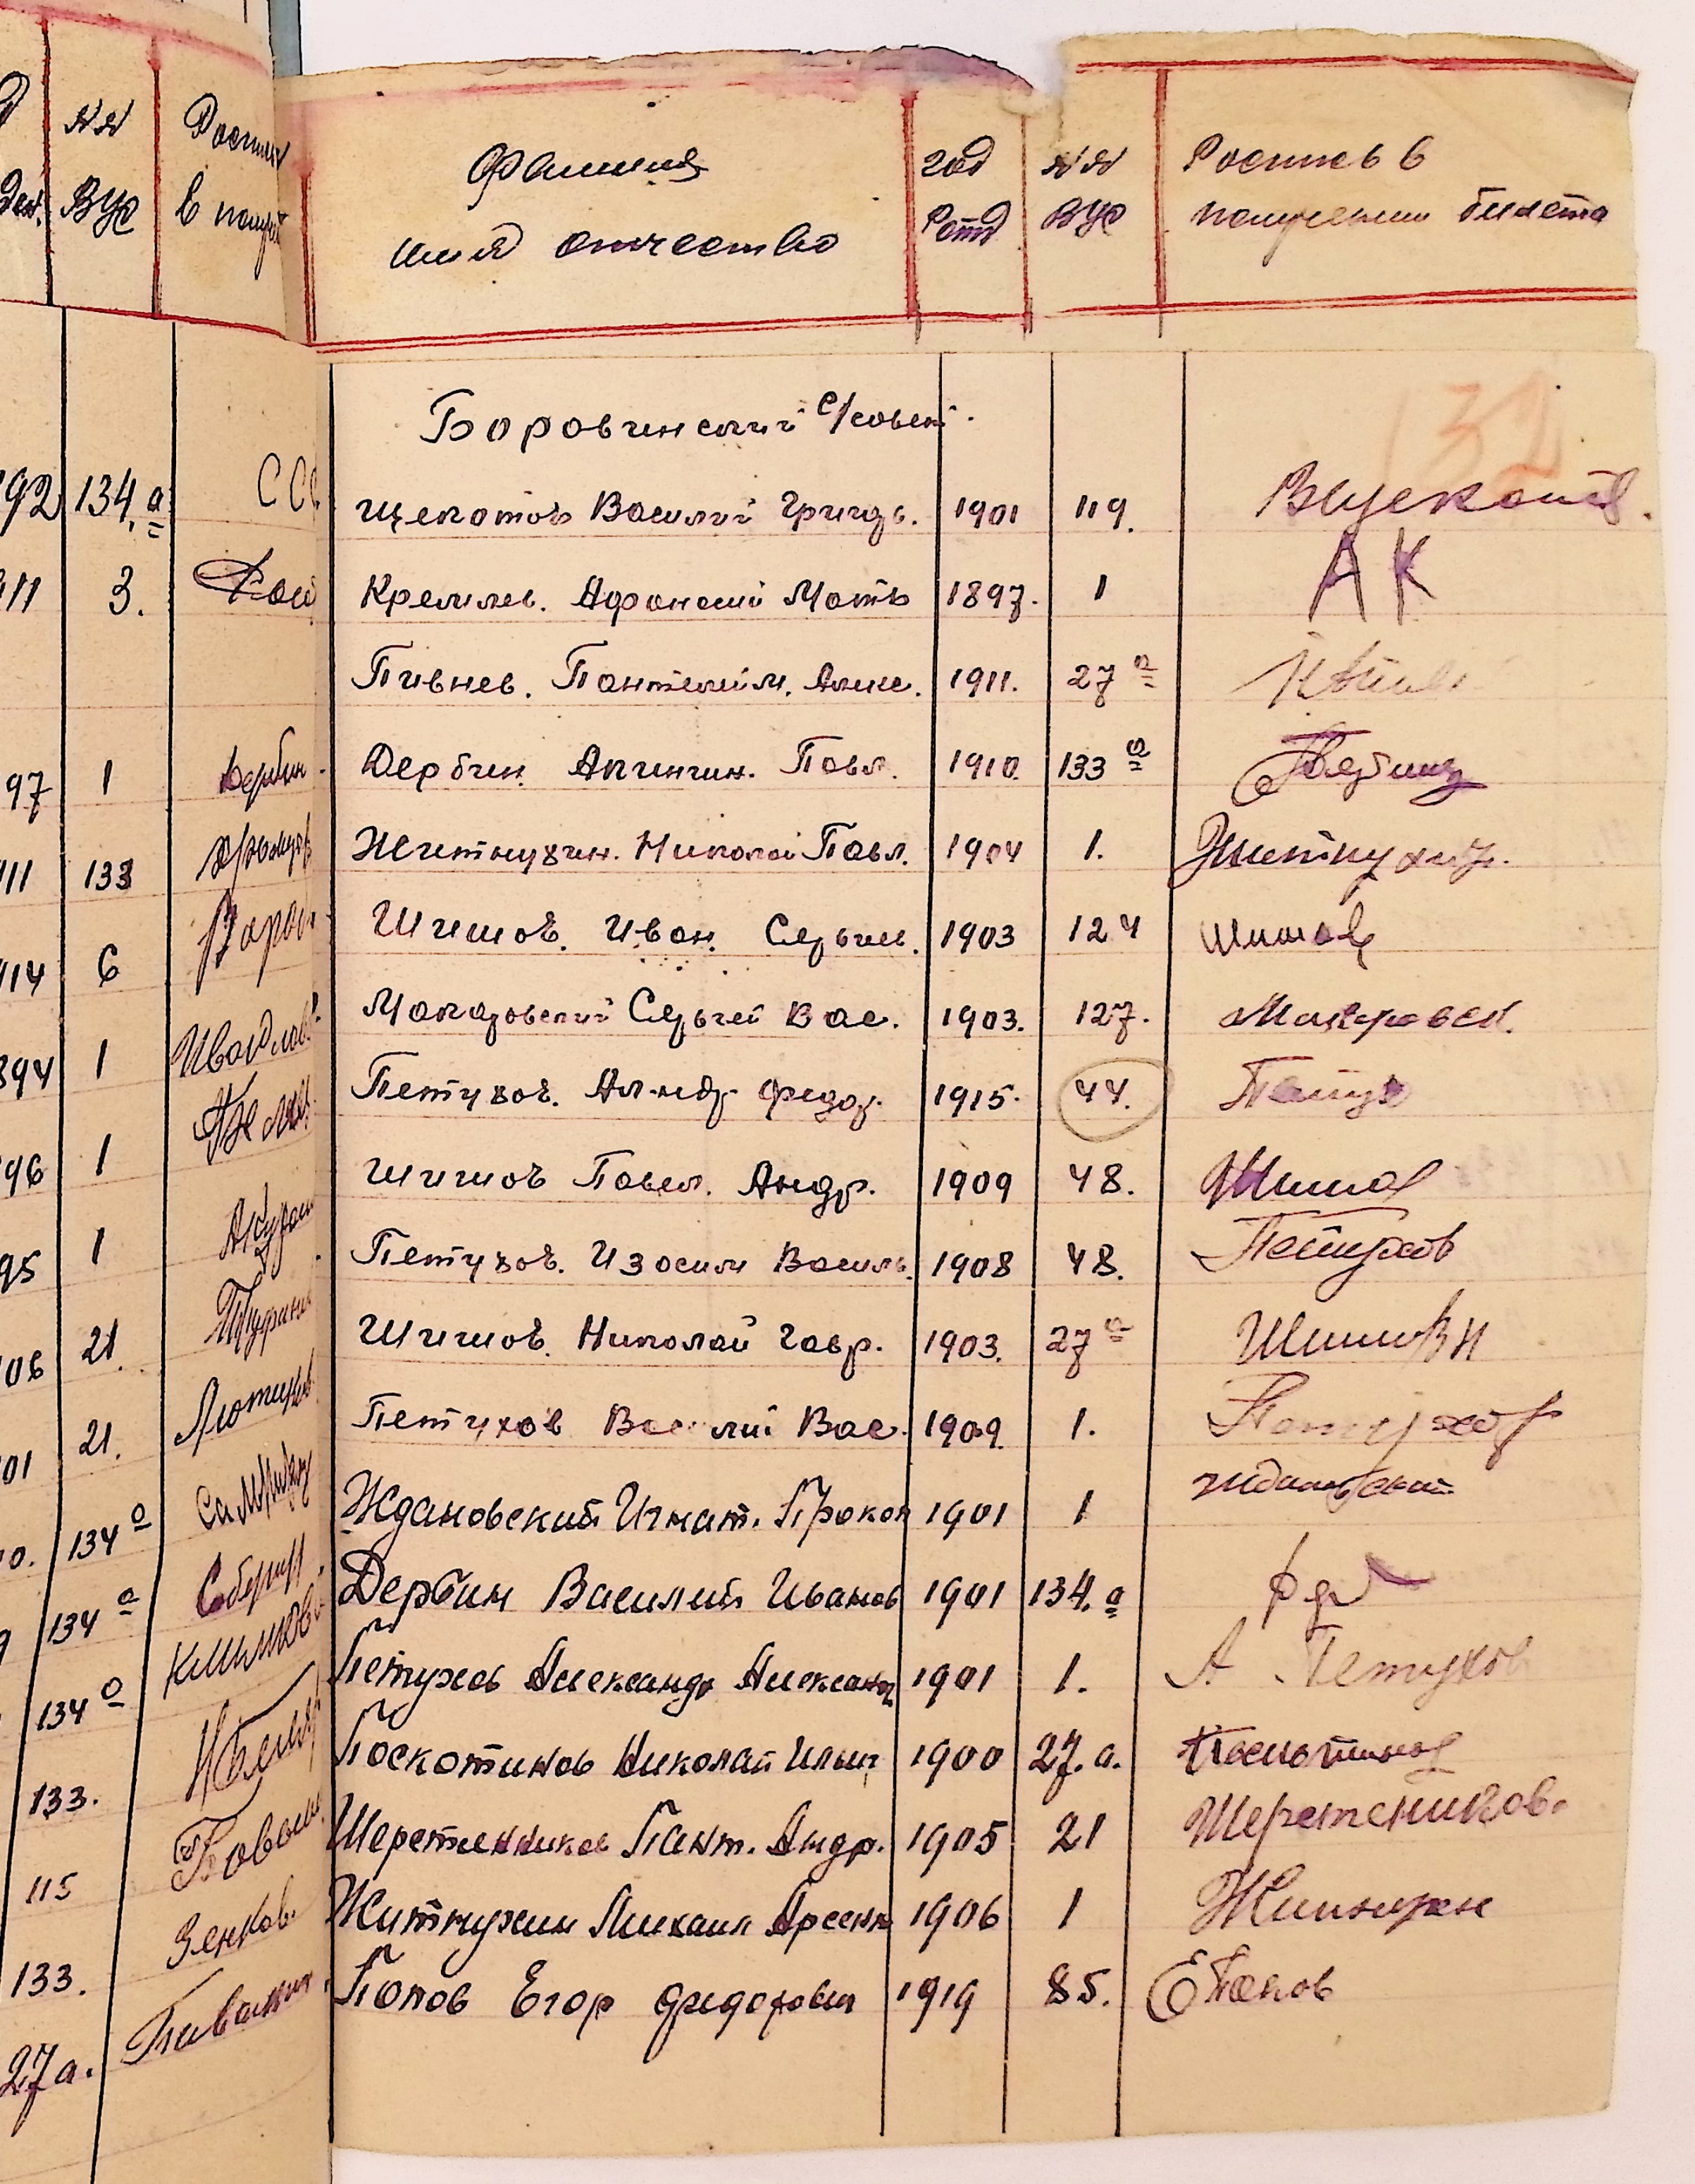 NN
ВУС
в получ
Фамилия
имя отчество
год
рожд
NN
ВУС
Роспись в
получении билета
Боровинский с/совет.
132
Щекотов Василий Григор. 1901 119.
Кремлев. Афанасий Матв 1897. 1 АК
Пивнев. Пантелейм. Алекс. 1911. 27а
Дербин. Апининин. Павл. 1910. 133а Дербин
Житнухин. Николай Павл. 1904 1. Житнухин.
Шишов. Иван. Сергеев. 1903 124 Шишов
Макаровский Сергей Вас. 1903. 127. Макаровск.
Петухов. Ал-ндр Федор. 1915. 44. Петух
Шишов Павел. Андр. 1909 48. Шишов
Петухов. Изосим Василь. 1908 48. Петухов
Шишов. Николай Гавр. 1903. 27а Шишов Н
Петухов Василий Вас. 1909. 1. Петухов
Ждановский Игнат. Прокоп 1901 1 Ждановский
Дербин Василий Иванов 1901 134.а
Петухов Александр Александр 1901 1. А. Петухов
Поскотинов Николай Ильич 1900 27.а. Поскотинов
Шеретенников Пант. Андр. 1905 21 Шеретеников.
Житнухин Михаил Арсент 1906 1 Житнухин
Попов Егор Федорович 1919 85. Е Попов
92 134.а ССС
11 3.
97 1 Дербин
11 133
14 6
894 1
96 1
95 1
06 21.
01 21. Лютиков
0. 134а
134а
134а Климов
133.
115
133. Зенков.
27а. Пивакин